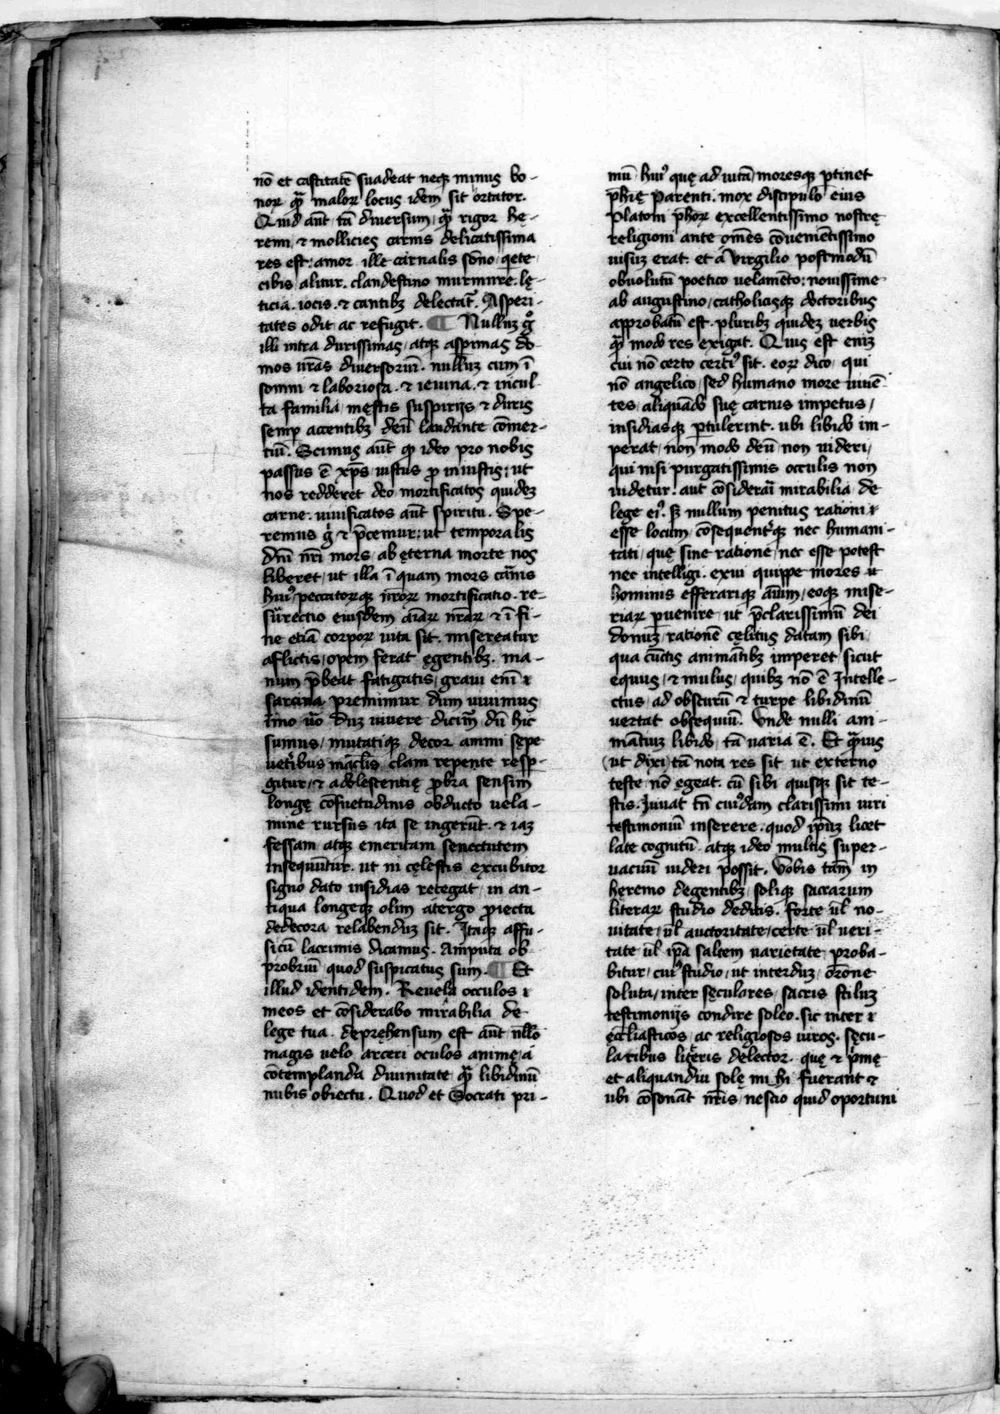 nō et castitatē suadeat neqꝫ minus bo-
noꝝ qᷓ maloꝝ locus idem sit ortator.
Quid aūt tā diversum, qᷓ rigor he-
remi, ⁊ mollicies carnis delicatissima
res est: amor ille carnalis sōno, q̄ete
cibis alitur. clandestino murmure. lę-
ticia. iocis. ⁊ cantibꝫ delectat᷑. Asperi-
tates odit ac refugit. ¶ Nullūꝫ gͦ
illi intra durissimas, atqꝫ asp̄rimas do-
mos n̄ras diversoriū. nullūꝫ cum ī
somni ⁊ laboriosa. ⁊ ieiuna. ⁊ incul
ta familia, mestis suspirijs ⁊ duris
semꝑ accentibꝫ deū laudante cōmer-
tiū. Scimus aūt ꝙ ideo pro nobis
passus ē xp̄s, iustus ꝓ iniustis: ut
nos redderet deo mortificatos quideꝫ
carne. vivificatos aūt spiritu. Spe-
remus gͦ ⁊ p̄cemur: ut temporalis
dn̄i nr̄i mors, ab ęterna morte nos
liberet, ut illa ī quam mors carnis
huiꝰ peccatorꝗꝫ nr̄oꝝ mortificatio. re-
surrectio eiusdem aīaꝝ nr̄aꝝ, ⁊ ī fi-
ne etiā corpoꝝ vita sit. misereatur
aflictis, opem ferat egentibꝫ. ma-
num p̄beat fatigatis, gravi eni
sarcina premimur dum vivimus
imo ūo dūꝫ vivere dicimᷣ, dū hic
sumus, mutatiqꝫ decor animi sępe
veteribus maclis, clam repente resp-
gitur, ⁊ adolescentię ꝓbra sensim
longę cōsuetudinis obducto vela-
mine rursus ita se ingerūt. ⁊ iāꝫ
fessam atqꝫ emeritam senectutem
insequūtur. ut ni cęlestis excubitor
signo dato insidias retegat, in an-
tiqua longeqꝫ olim atergo ꝓiecta
dedecora relabendūꝫ sit. Itaqꝫ affu-
sicū lacrimis dicamus. Amputa ob
probriū quod suspicatus sum. ¶ Et
illud identidem. Revela occulos
meos et cōsiderabo mirabilia de
lege tua. deprehensum est aūt n̄llo
magis velo arceri oculos anime, a
cōtemplanda divinitate, qᷓ libidinū
nubis obiectu. Quod et Socrati pri-
mū huiꝰ quę ad vitā, moresqꝫ ꝑtinet
ph̄ię Parenti. mox discipulo eius
Platoni ph̄oꝝ excellentissimo nostrę
religioni ante om̄es cōvenientissimo
visūꝫ erat. et a Virgilio postmodū
obvolutū poetico velamēto: novissime
ab augustino, catholicisqꝫ doctoribus
approbatū est. pluribꝫ quideꝫ verbis
qᷓ modo res exigat. Quis est enīꝫ
cui nō certo certiꝰ sit. eoꝝ dico, qui
nō angelico, sed humano more vivē-
tes, aliquādo suę carnis impetus,
insidiasqꝫ ꝑtulerint. ubi libido im-
perat, non modo deū non videri,
qui nisi purgatissimis occulis non
videtur. aut cōsiderari mirabilia de
lege eiꝰ. sꝫ nullum penitus rationi
esse locum, cōsequenterqꝫ nec humani-
tati, quę sine ratione, nec esse potest
nec intelligi. exui quippe mores
hominis efferariqꝫ aīum, eoqꝫ mise-
riaꝝ ꝑvenire, ut p̄clarissimū dei
donūꝫ, rationē cęlitus datam sibi,
qua cūctis animātibꝫ imperet, sicut
equus, ⁊ mulus, quibꝫ nō ē Intelle-
ctus, ad obscurū ⁊ turpe libidinū
vertat obsequiū. Unde nulli ani-
mātiūꝫ libido, tā varia ē. Et qᷓvis
ut dixi, tā nota res sit, ut externo
teste, nō egeat. cū sibi quisqꝫ sit te-
stis. Iuvat tn̄ cuiꝰdam clarissimi viri
testimoniū inserere, quod ip̄uꝫ licet
late cognitū. atqꝫ ideo multis super-
vacuū videri possit. Vobis tam̄ in
heremo degentibꝫ, solisqꝫ sacrarum
literaꝝ studio deditis. forte ul̄ no-
vitate, ul̄ auctoritate, certe ul̄ veri-
tate ul̄ ip̄a saltem varietate, proba-
bitur, cuiꝰ studio, ut interdūꝫ, or̄one
soluta, inter sęculares, sacris stilūꝫ
testimonijs condire soleo. sic inter
eccl̄iasticos, ac religiosos viros. sęcu-
laribus literis delector. quę ⁊ p̄mę
et aliquandiu solę mi hi fuerant ⁊
ubi cōsonāt nr̄is, nescio quid oportuni